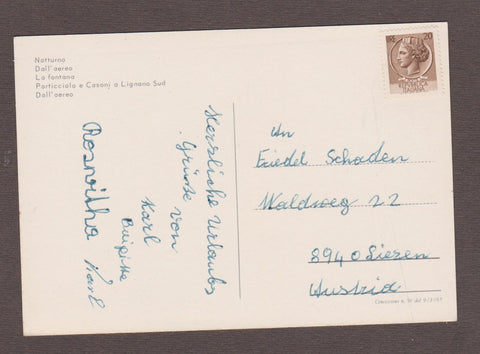 Notturno
Dall'aereo
La fontana
Porticciolo e Casoni a Lignano Sud
Dall'aereo
20
Herzliche Urlaubs
Grüsse von
Karl
Brigitte
Roswitha Karl
An
Friedel Schaden
Waldweg 22
8940 Liezen
Austria